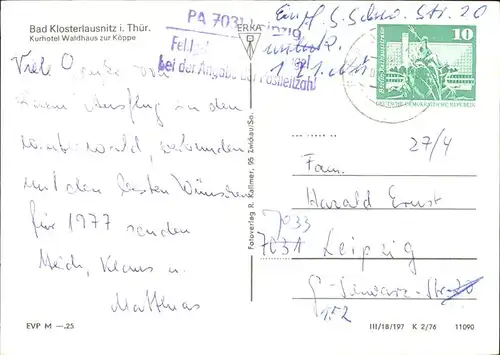 Bad Klosterlausnitz i. Thür.
Kurhotel Waldhaus zur Köppe
PA 7031 Leipzig
bei der Angabe der Postleitzahl
S. Schw. Str. 20
10
DEUTSCHE DEMOKRATISCHE REPUBLIK
Viele
Ausflug in den
winterwald, verbunden
mit den besten Wünschen
für 1977 senden
Klaus u.
Matthias
Fotoverlag R. Kallmer, 95 Zwickau/Sa.
27/4
Fam.
Harald Ernst
7033
7031 Leipzig
G.-Schwarz-Straße
152
EVP M —.25
III/18/197 K 2/76 11090